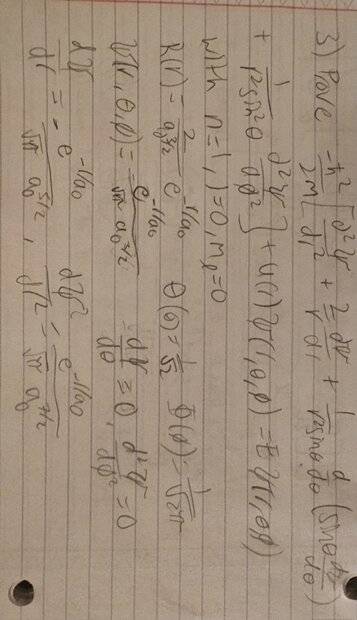 3) Prove -ħ²/2M [d²ψ/dr² + 2/r dψ/dr + 1/r²sinθ d/dθ (sinθ dψ/dθ)
+ 1/r²sin²θ d²ψ/dφ²] + U(r)ψ(r,θ,φ) = Eψ(r,θ,φ)
with n=1, l=0, m_l=0
R(r) = 2/a₀^3/2 e^-r/a₀ θ(θ) = 1/√2 Φ(φ) = 1/√2π
ψ(r,θ,φ) = e^-r/a₀/√π a₀^3/2 dψ/dθ = 0, d²ψ/dφ² = 0
dψ/dr = - e^-r/a₀/√π a₀^5/2, d²ψ/dr² = e^-r/a₀/√π a₀^7/2